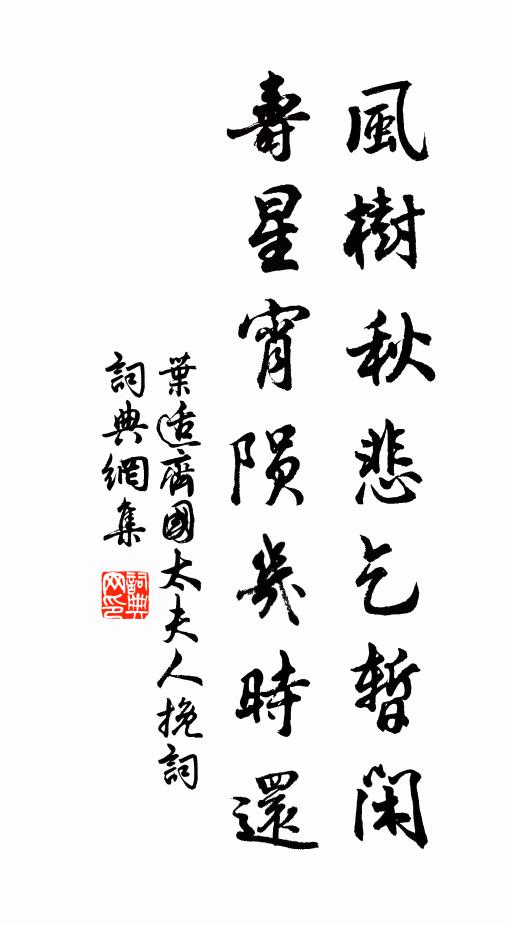 風樹秋悲乞暫閑
壽星宵隕幾時還
葉適齊國太夫人挽詞
詞典網集
詞典網印